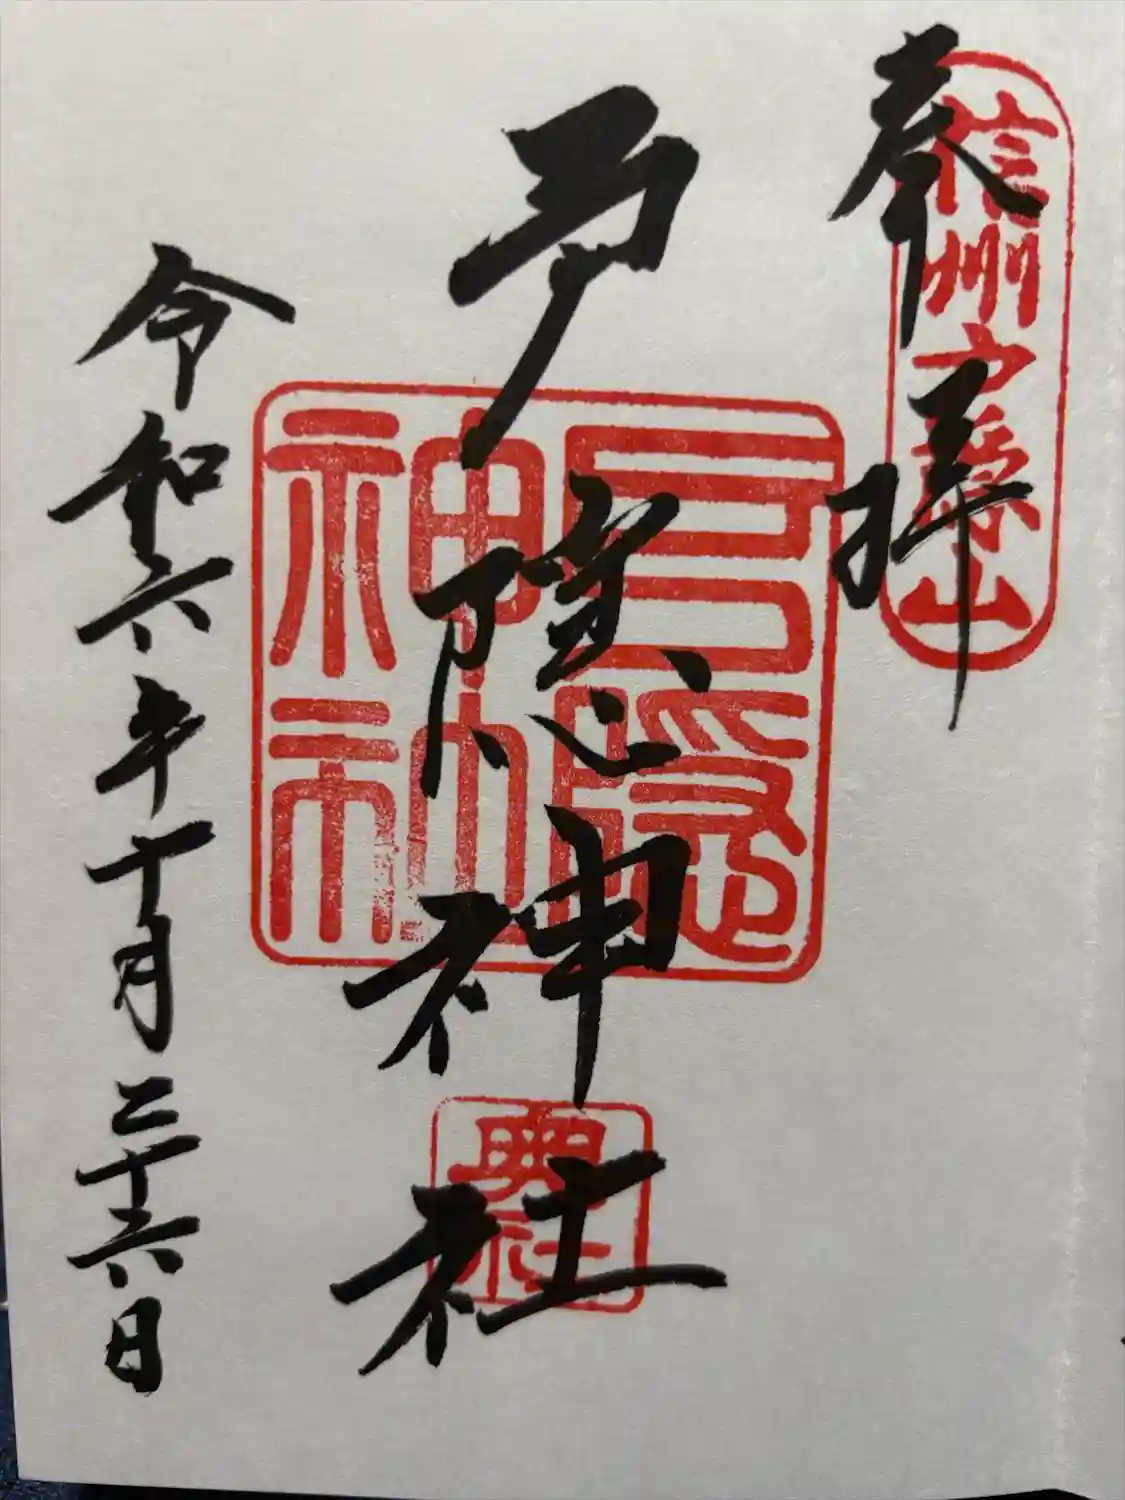 奉拝
信州戸隠山
戸隠神社
戸隠
神社
奥社
令和六年十月二十六日